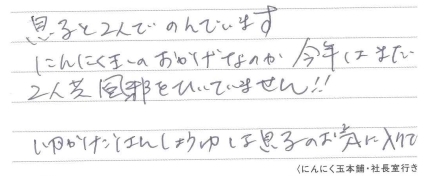 息子と2人でのんでいます
にんにく玉のおかげなのか 今年はまだ
2人共風邪をひいていません!!
しょうゆは息子のお気に入りで
(にんにく玉本舗・社長室行き